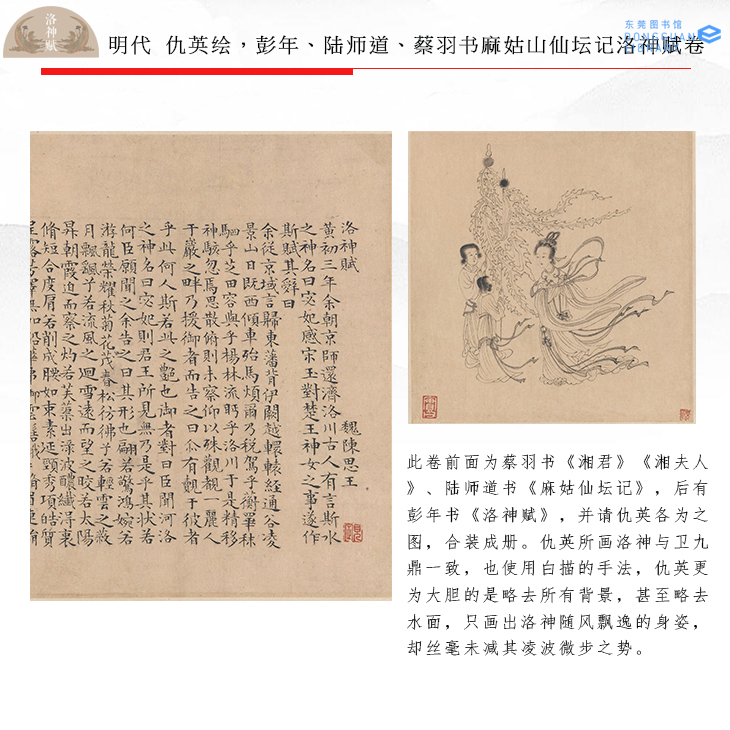 洛神赋
明代 仇英绘，彭年、陆师道、蔡羽书麻姑山仙坛记洛神赋卷
东莞图书馆
洛神賦
魏陳思王
黃初三年余朝京師還濟洛川古人有言斯水
之神名曰宓妃感宋玉對楚王神女之事遂作
斯賦其辭曰
余從京域言歸東藩背伊闕越轘轅經通谷凌
景山日既西傾車殆馬煩爾乃稅駕乎蘅皋秣
駟乎芝田容與乎楊林流眄乎洛川于是精移
神駭忽焉思散俯則未察仰以殊觀覩一麗人
于巖之畔乃援御者而告之曰尒有覿于彼者
乎此何人斯若此之艷也御者對曰臣聞河洛
之神名曰宓妃則君王所見無乃是乎其狀若
何臣願聞之余告之曰其形也翩若驚鴻婉若
游龍榮耀秋菊花茂春松彷彿乎若輕雲之蔽
月飄飄乎若流風之迴雪遠而望之皎若太陽
昇朝霞迫而察之灼若芙蕖出淥波醲纖得衷
脩短合度肩若削成腰如束素延頸秀項皓質
此卷前面为蔡羽书《湘君》《湘夫人
》、陆师道书《麻姑仙坛记》，后有
彭年书《洛神赋》，并请仇英各为之
图，合装成册。仇英所画洛神与卫九
鼎一致，也使用白描的手法，仇英更
为大胆的是略去所有背景，甚至略去
水面，只画出洛神随风飘逸的身姿，
却丝毫未减其凌波微步之势。